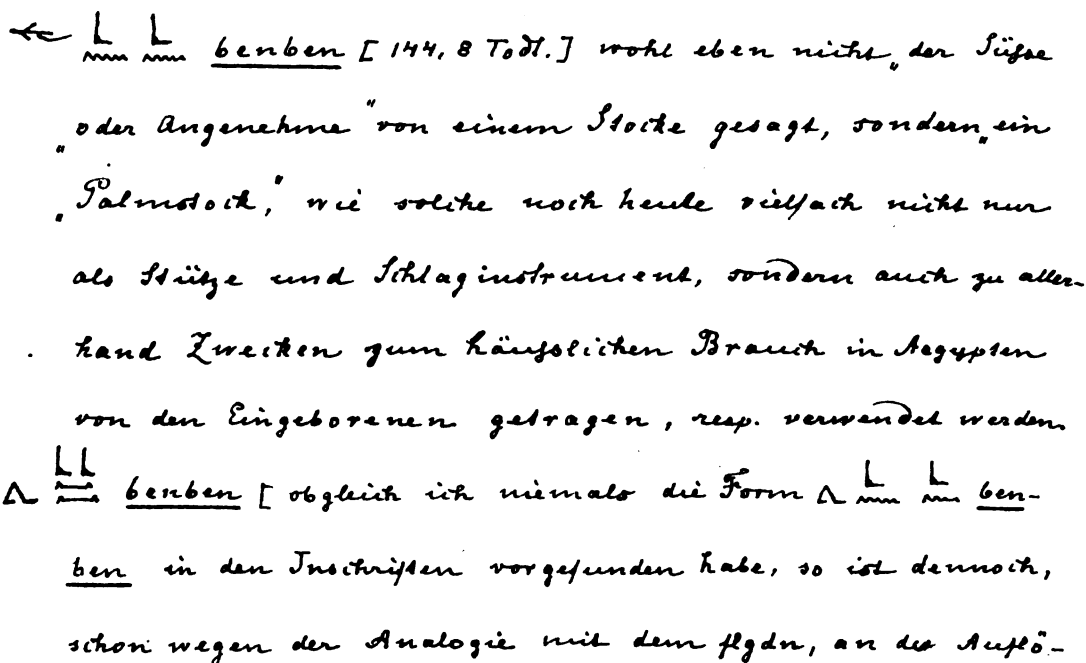 𓆱 𓃀𓈖 𓃀𓈖 benben [ 144, 8 Todt. ] wohl eben nicht „der Süsse
oder Angenehme“ von einem Stocke gesagt, sondern „ein
„Palmstock,“ wie solche noch heute vielfach nicht nur
als Stütze und Schlaginstrument, sondern auch zu aller-
hand Zwecken zum häusslichen Brauch in Aegypten
von den Eingeborenen getragen, resp. verwendet werden.
𓂻 𓃀𓃀𓈖𓈖 benben [ obgleich ich niemals die Form 𓂻 𓃀𓈖 𓃀𓈖 ben-
ben in den Inschriften vorgefunden habe, so ist dennoch,
schon wegen der Analogie mit dem flgdn, an der Auflö-